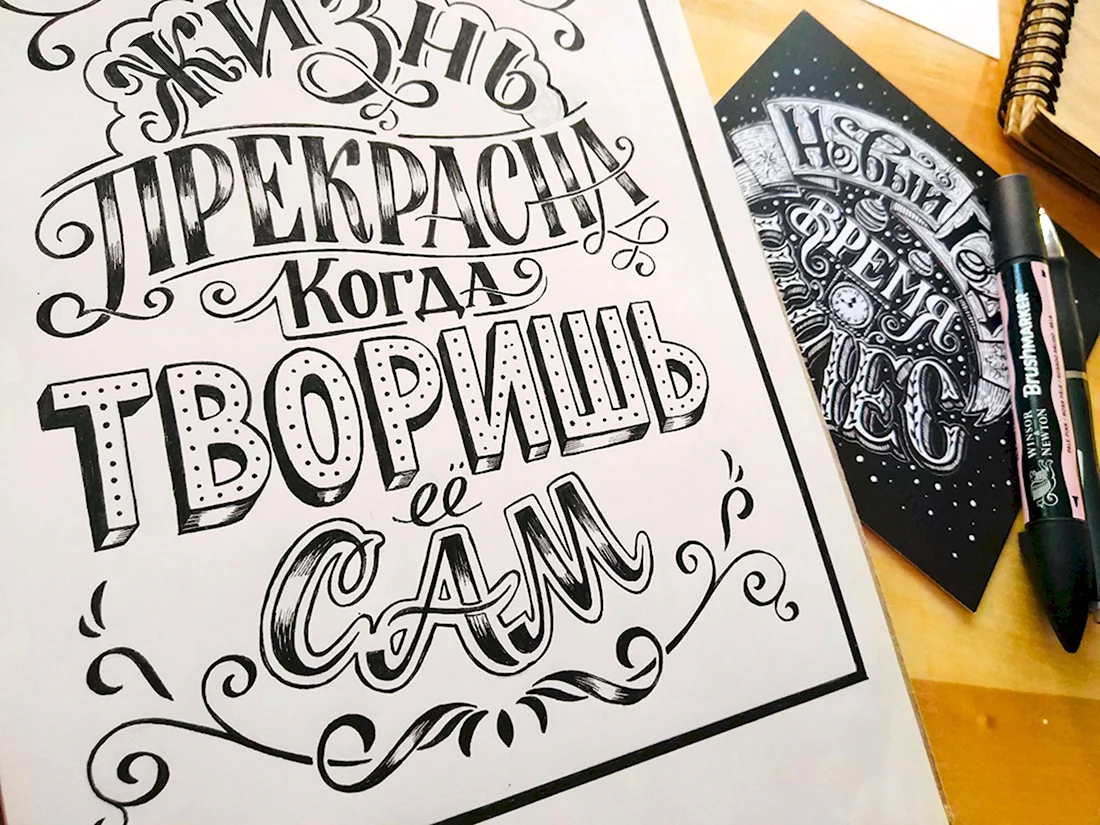 ЖИЗНЬ
ПРЕКРАСНА
КОГДА
ТВОРИШЬ
её
САМ
Новый
ВРЕМЯ
WINSOR & NEWTON
BrushMARKER